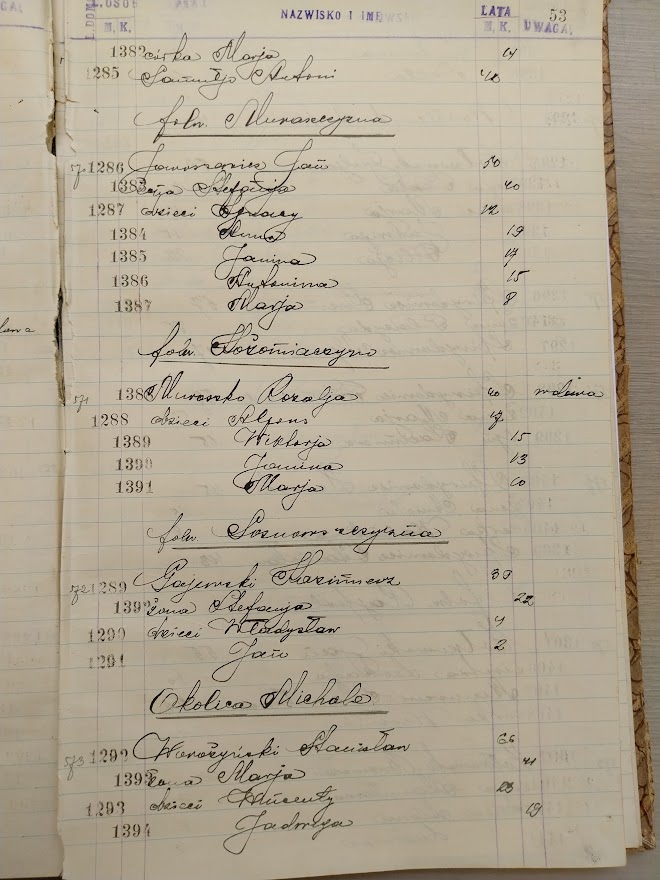 L. DOM L. OSÓB NAZWISKO I IMIĘ LATA 53
M. K. M. K. UWAGA
1382 córka Marja 14
1285 Antoni 42
folw. Muraszczyzna
70 1286 Jaroszewicz Jan 50
1383 żona Stefanija 40
1287 dzieci Ignacy 12
1384 Anna 19
1385 Janina 17
1386 Antonina 15
1387 Marja 8
folw.
71 1388 Muraszko Rozalja 40 wdowa
1288 dzieci Alfons 17
1389 Wiktorja 15
1390 Janina 13
1391 Marja 10
folw.
72 1289 Gajewski Kazimierz 39
1392 żona Stefanja 22
1290 dzieci Władysław 4
1291 Jan 2
Okolica Michale
73 1292 Worożyński Stanisław 66
1393 żona Marja 41
1293 dzieci Wincenty 23
1394 Jadwiga 19